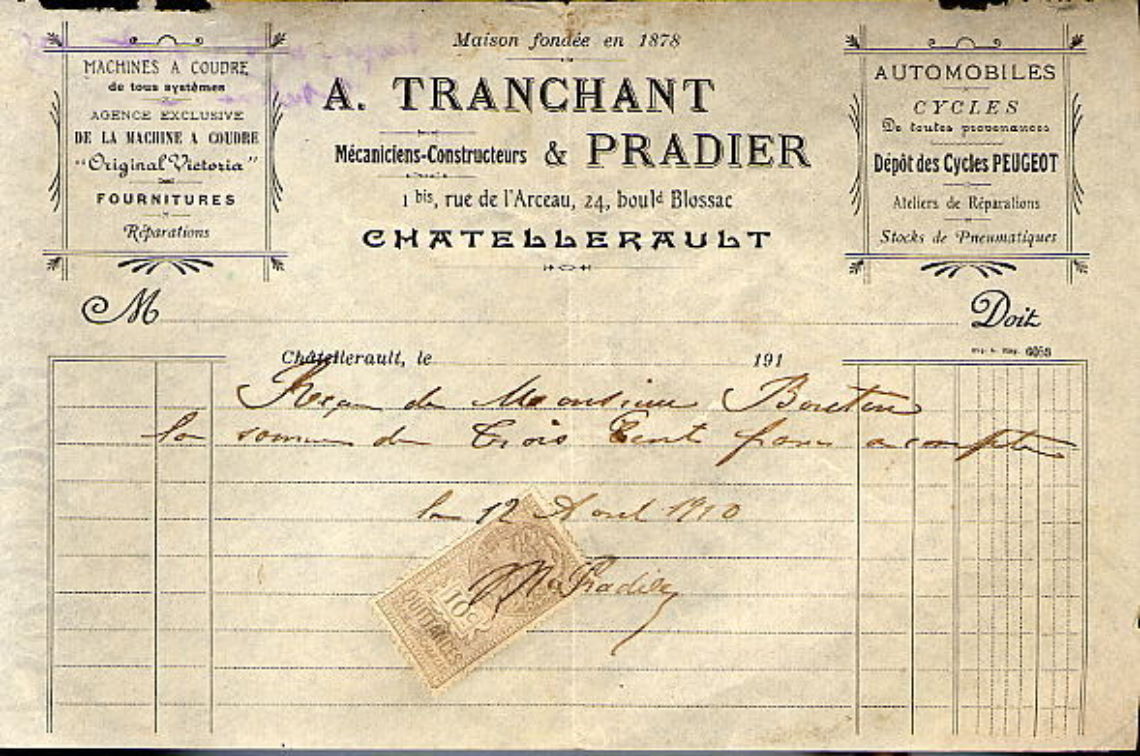 MACHINES A COUDRE
de tous systèmes
AGENCE EXCLUSIVE
DE LA MACHINE A COUDRE
"Original Victoria"
FOURNITURES
Réparations
Maison fondée en 1878
A. TRANCHANT
Mécaniciens-Constructeurs & PRADIER
1 bis, rue de l'Arceau, 24, bould Blossac
CHATELLERAULT
AUTOMOBILES
CYCLES
De toutes provenances
Dépôt des Cycles PEUGEOT
Ateliers de Réparations
Stocks de Pneumatiques
M Doit
6053
Châtellerault, le 191
Reçu de Monsieur
la somme de trois Cent francs acompte
le 12 Avril 1910
Pradier
10c
QUITTANCES